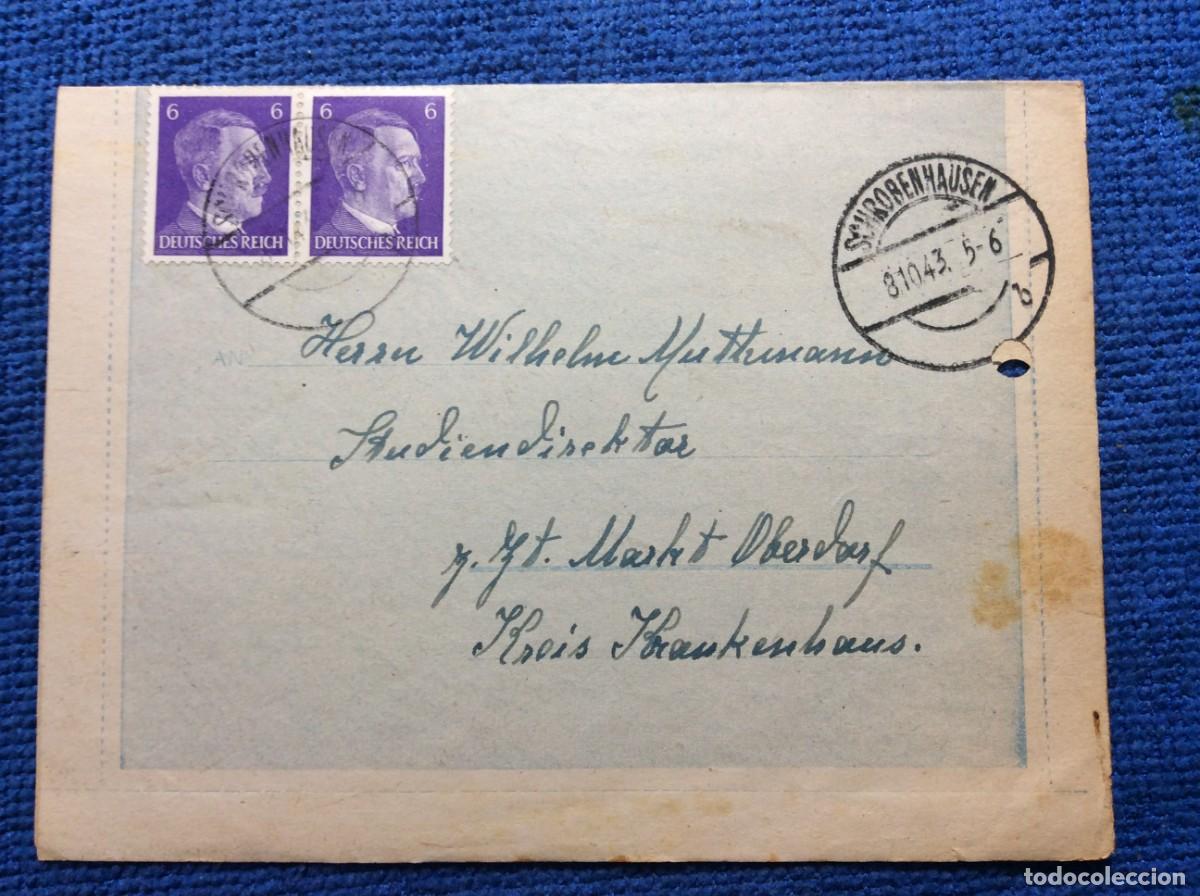 6 6 6 6
DEUTSCHES REICH DEUTSCHES REICH
SCHROBENHAUSEN
SCHROBENHAUSEN
8.10.43. 5-6
b
Herrn Wilhelm Muthmann
Studiendirektor
z. Zt. Markt Oberdorf
Kreis Krankenhaus.
todocoleccion.net